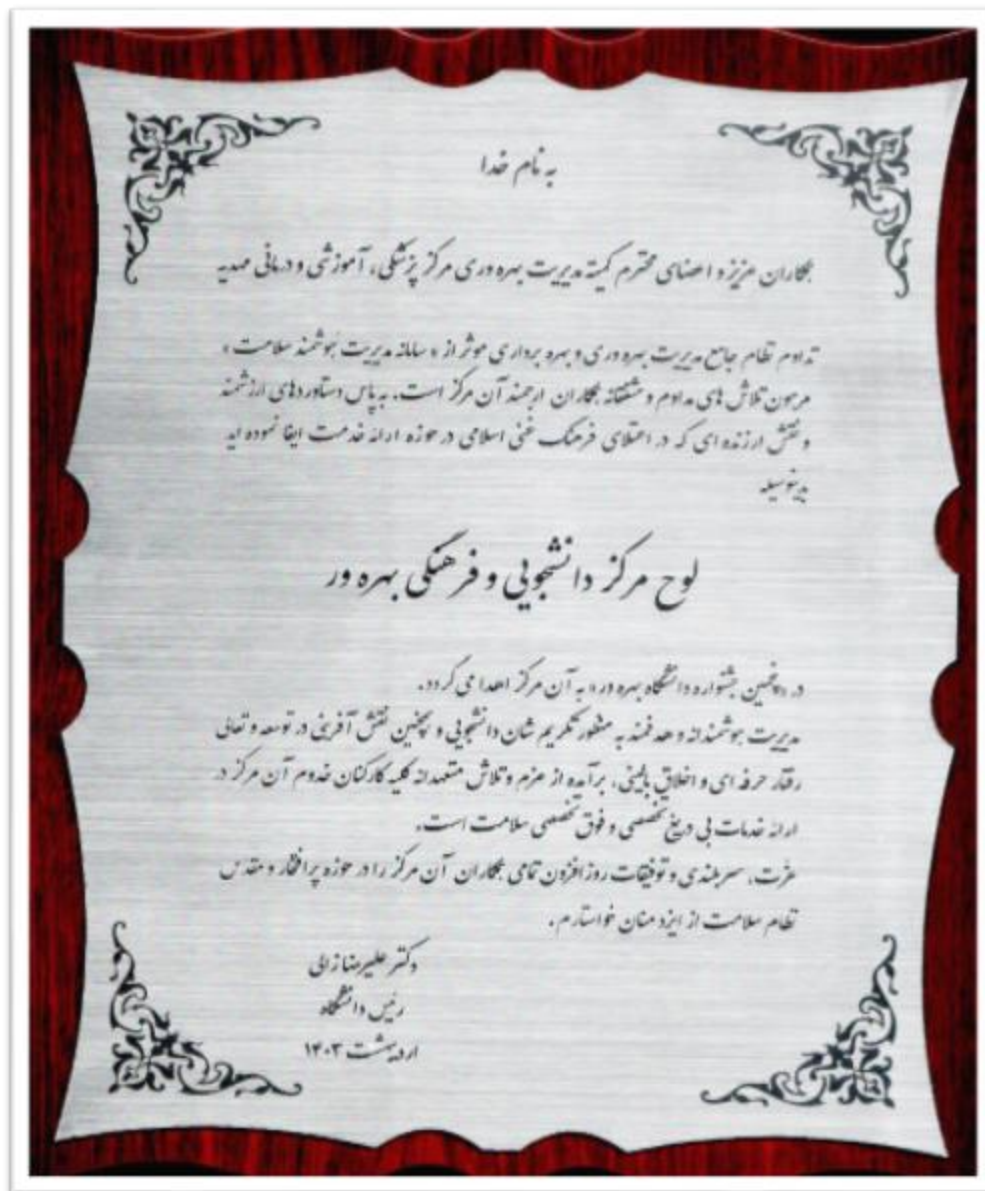 به نام خدا
همکاران عزیز و اعضای محترم کمیته مدیریت بهره وری مرکز پزشکی، آموزشی و درمانی مهدیه
تداوم نظام جامع مدیریت بهره وری و بهره برداری موثر از « سامانه مدیریت هوشمند سلامت »
مرهون تلاش های مداوم و مشفقانه همکاران ارجمند آن مرکز است. به پاس دستاوردهای ارزشمند
و نقش ارزنده ای که در اعتلای فرهنگ غنی اسلامی در حوزه ارائه خدمت ایفا نموده اید
بدینوسیله
لوح مرکز دانشجویی و فرهنگی بهره ور
در « پنجمین جشنواره دانشگاه بهره ور » به آن مرکز اهدا می گردد.
مدیریت هوشمندانه و هدفمند به منظور تکریم شان دانشجویی و همچنین نقش آفرینی در توسعه و تعالی
رفتار حرفه ای و اخلاق بالینی، برآمده از عزم و تلاش متعهدانه کلیه کارکنان خدوم آن مرکز در
ارائه خدمات بی دریغ تخصصی و فوق تخصصی سلامت است.
عزت، سربلندی و توفیقات روزافزون تمامی همکاران آن مرکز را در حوزه پرافتخار و مقدس
نظام سلامت از ایزد منان خواستارم.
دکتر علیرضا زالی
رئیس دانشگاه
اردیبهشت ۱۴۰۳